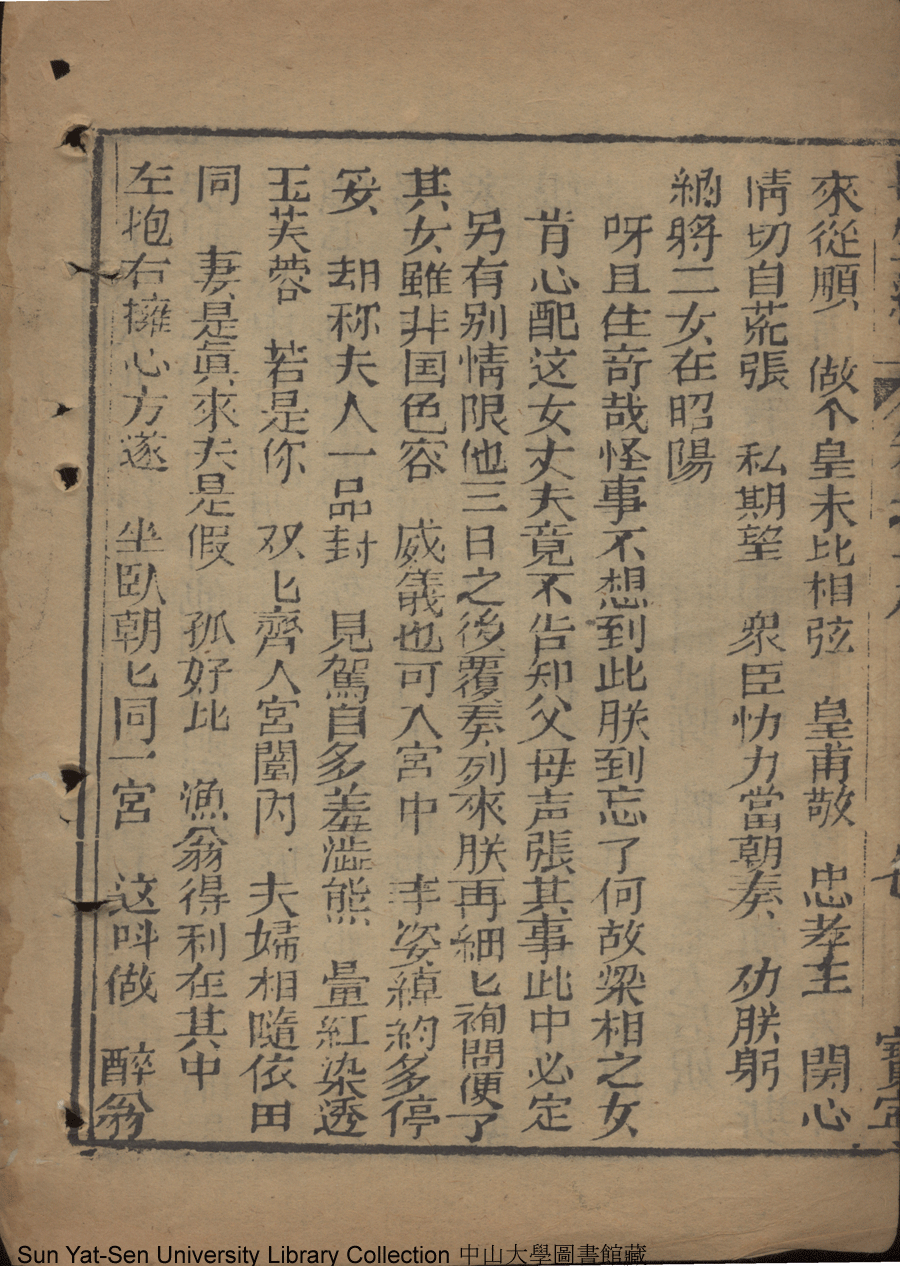 來從順 做个皇未比相弦 皇甫敬 忠孝主 関心
情切自荒張 私期望 衆臣协力當朝奏 劝朕躬
網將二女在昭陽
呀且住竒哉怪事不想到此朕到忘了何故梁相之女
肯心配这女丈夫竟不告知父母声張其事此中必定
另有别情限他三日之後覆奏列來朕再細匕詢問便了
其女雖非国色容 威儀也可入宮中 李姿綽約多停
妥 胡称夫人一品封 見駕自多羞澁熊 暈紅染透
玉芙蓉 若是你 双匕齊入宮闈内 夫婦相隨依田
同 妻是眞來夫是假 孤好比 漁翁得利在其中
左抱右擁心方遂 坐臥朝匕同一宮 这呌做 醉翁
Sun Yat-Sen University Library Collection 中山大學圖書館藏